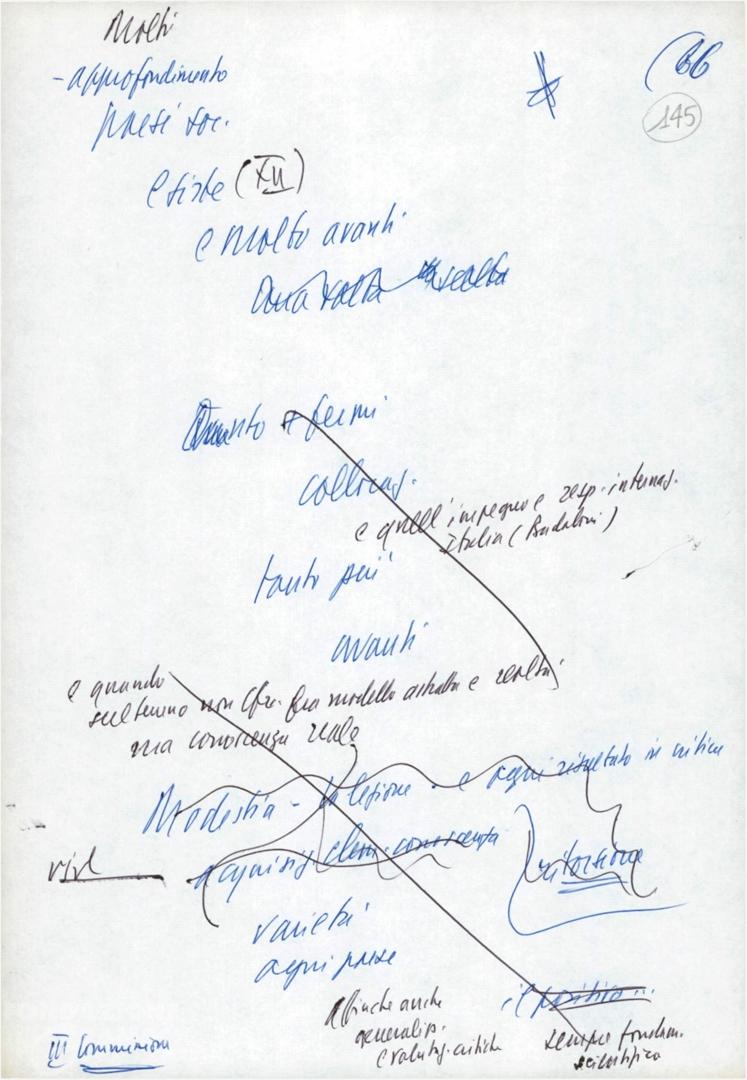 Molti
(66
- approfondimento
145
paesi soc.
esiste (XII)
e molto avanti
una volta scelta
Quanto + fermi
collocaz.
e quell'impegno e resp. internaz.
Italia (Badaloni)
tanto più
avanti
e quando
sul terreno non cfr. fra modello astratto e realtà
ma conoscenza reale
Modestia - la lezione - e ogni risultato in critica
acquisiz. elem. conoscenza
ritorsione
viol
varietà
ogni paese
affinché anche
generalizz.
e valutaz. critiche
il positivo...
sempre fondam.
scientifico
III Commissione